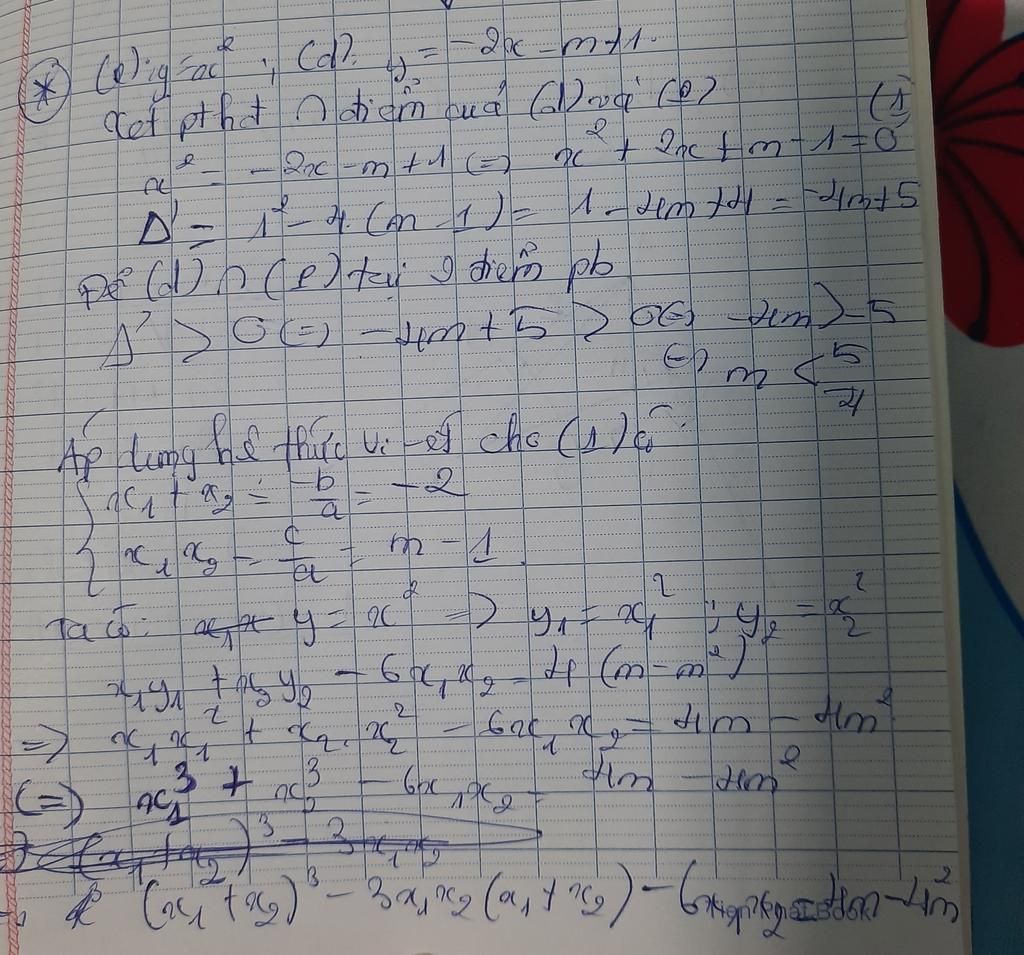 (P): y = x² ; (d): y = -2x - m + 1.
Xét pthđ ∩ điểm của (d) và (P)
x² = -2x - m + 1 (=) x² + 2x + m - 1 = 0 (1)
Δ' = 1² - 4.(m - 1) = 1 - 4m + 4 = -4m + 5
Để (d) ∩ (P) tại 2 điểm pb
Δ' > 0 (=) -4m + 5 > 0 (=) -4m > -5
(=) m < 5/4
Áp dụng hệ thức vi-ét cho (1) có
x₁ + x₂ = -b/a = -2
x₁ x₂ = c/a = m - 1
Ta có: y = x² => y₁ = x₁² ; y₂ = x₂²
x₁y₁ + x₂y₂ - 6x₁x₂ = 4(m - m²)
=> x₁x₁² + x₂.x₂² - 6x₁x₂ = 4m - 4m²
(=) x₁³ + x₂³ - 6x₁x₂ = 4m - 4m²
(x₁ + x₂)³ - 3x₁x₂
(x₁ + x₂)³ - 3x₁x₂(x₁ + x₂) - 6x₁x₂ = 4m - 4m²